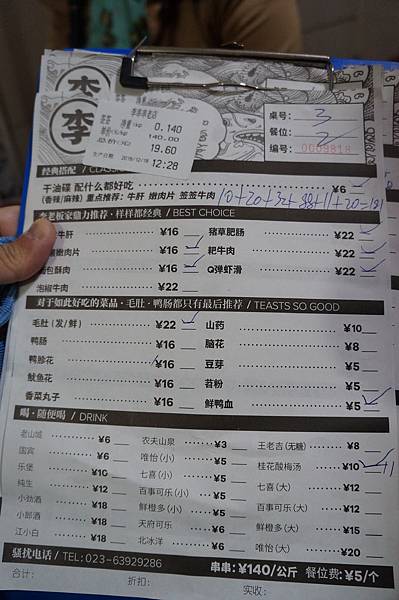 李
李
李串串老店
签签 净重/kg 0.140
单价(元/kg) 140.00
总价(元) 19.60
生产日期 2019/12/19 12:28
桌号: 3
餐位: 2
编号: 0009818
经典搭配 / CLASSIC
干油碟 配什么都好吃 ¥6
(香辣/麻辣) 重点推荐: 牛肝 嫩肉片 签签牛肉
李老板家鼎力推荐 · 样样都经典 / BEST CHOICE
牛肝 ¥16 猪草肥肠 ¥22
嫩肉片 ¥16 耙牛肉 ¥22
包酥肉 ¥16 Q弹虾滑 ¥22
泡椒牛肉 ¥22
对于如此好吃的菜品 · 毛肚 · 鸭肠都只有最后推荐 / TEASTS SO GOOD
毛肚 (发/鲜) ¥22 山药 ¥10
鸭肠 ¥16 脑花 ¥8
鸭胗花 ¥16 豆芽 ¥5
鱿鱼花 ¥16 苕粉 ¥5
香菜丸子 ¥16 鲜鸭血 ¥5
喝 · 随便喝 / DRINK
老山城 ¥6 农夫山泉 ¥3 王老吉(无糖) ¥8
国宾 ¥6 唯怡(小) ¥5 桂花酸梅汤 ¥10 +1
乐堡 ¥10 七喜(小) ¥5 七喜(大) ¥12
纯生 ¥12 百事可乐(小) ¥5 百事可乐(大) ¥12
小劲酒 ¥18 鲜橙多(小) ¥5 鲜橙多(大) ¥15
小郎酒 ¥18 天府可乐 ¥6 唯怡(大) ¥20
江小白 ¥18 北冰洋 ¥6
骚扰电话 / TEL: 023-63929286 串串: ¥140/公斤 餐位费: ¥5/个
合计: 折扣: 实收: